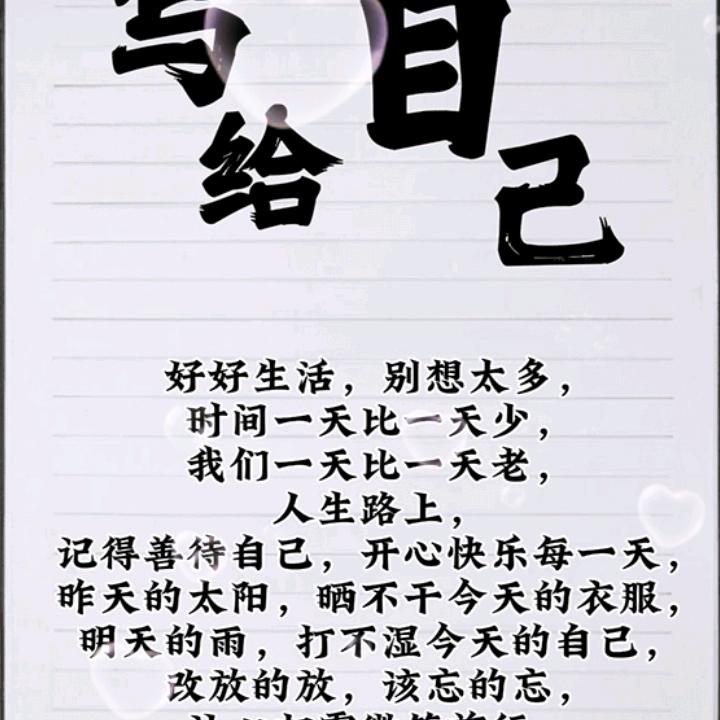 写给自己
好好生活，别想太多，
时间一天比一天少，
我们一天比一天老，
人生路上，
记得善待自己，开心快乐每一天，
昨天的太阳，晒不干今天的衣服，
明天的雨，打不湿今天的自己，
改放的放，该忘的忘，